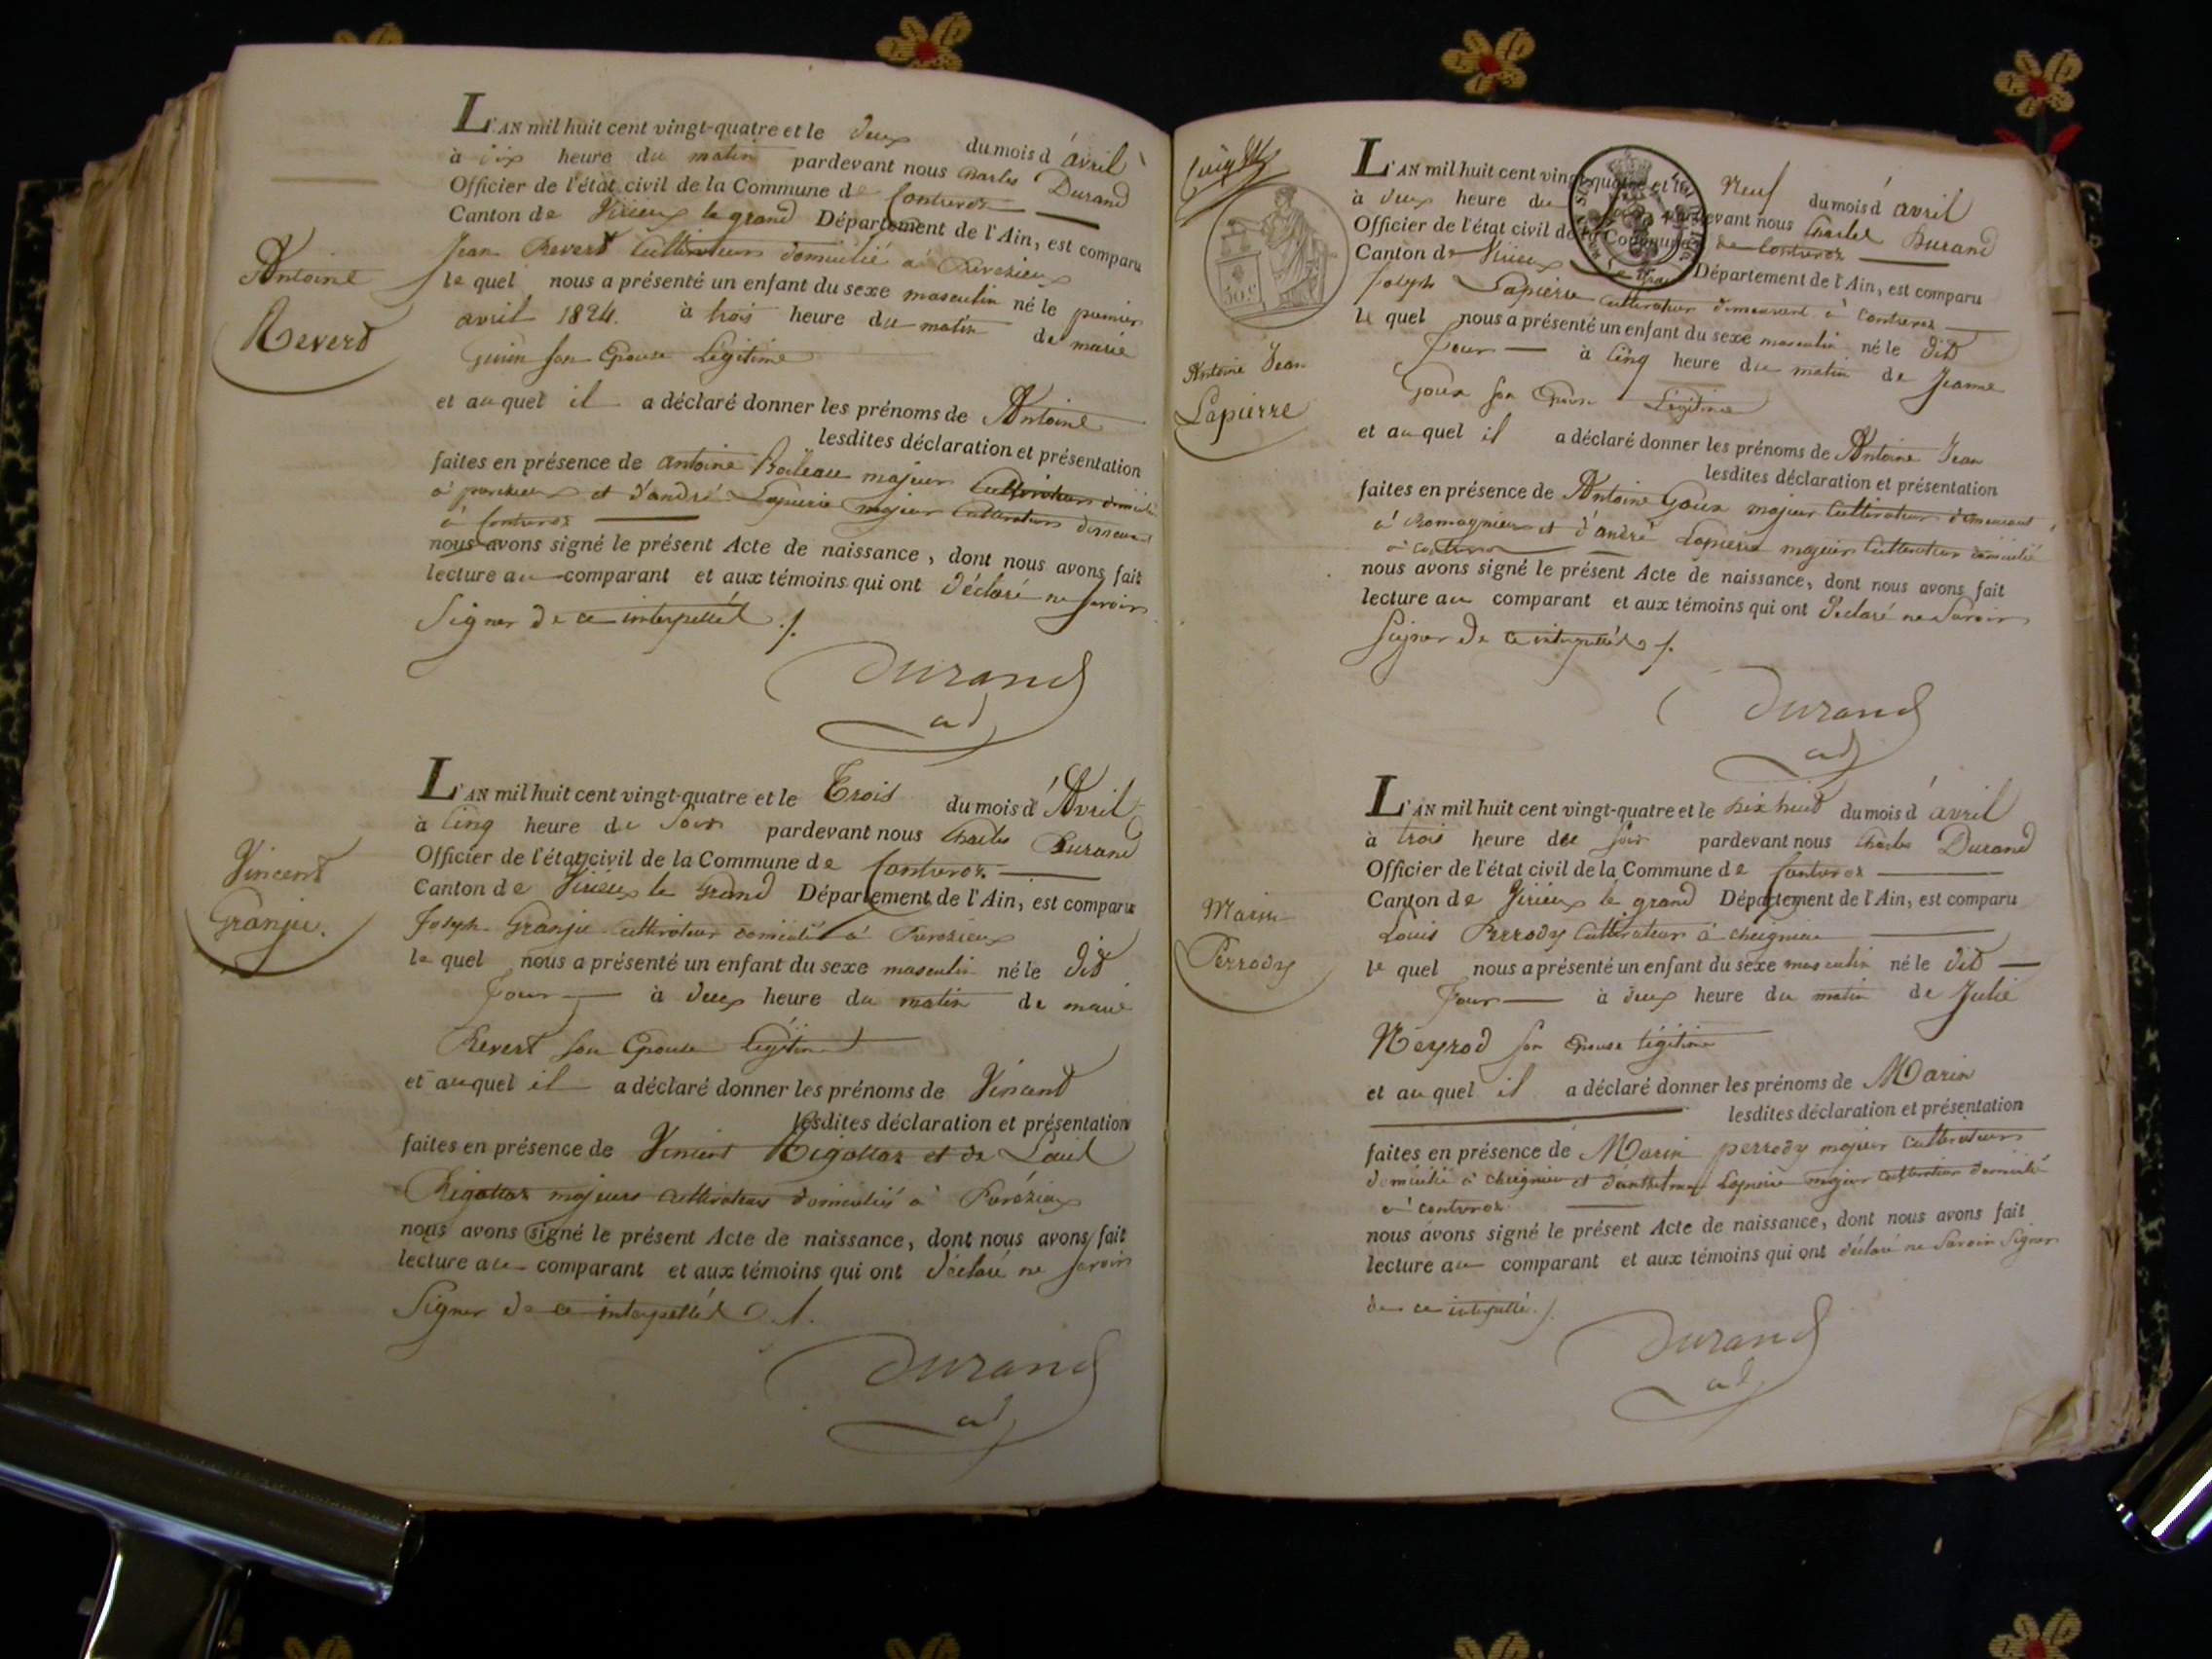 L'AN mil huit cent vingt-quatre et le deux du mois d'avril
à dix heure du matin pardevant nous Charles Durand
Officier de l'état civil de la Commune de Contrevoz
Canton de Virieux le grand Département de l'Ain, est comparu
Jean Reverd Cultivateur domicilié à
le quel nous a présenté un enfant du sexe masculin né le premier
avril 1824. à trois heure du matin de marie
son Epouse Légitime
et au quel il a déclaré donner les prénoms de Antoine
lesdites déclaration et présentation
faites en présence de antoine majeur Cultivateur
à et d'andré Lapierre majeur Cultivateur demeurant
à Contrevoz
nous avons signé le présent Acte de naissance, dont nous avons fait
lecture au comparant et aux témoins qui ont déclaré ne savoir
Signer de ce interpellés ./.
Durand
ad
Antoine
Reverd
L'AN mil huit cent vingt-quatre et le Trois du mois d'Avril
à Cinq heure du Soir pardevant nous Charles Durand
Officier de l'état civil de la Commune de Contrevoz
Canton de Virieux le Grand Département de l'Ain, est comparu
Joseph Granju cultivateur domicilié à
le quel nous a présenté un enfant du sexe masculin né le dit
Jour à deux heure du matin de marie
Revert son Epouse Légitime
et au quel il a déclaré donner les prénoms de Vincent
lesdites déclaration et présentation
faites en présence de Vincent Rigollaz et de Louis
Rigollaz majeurs cultivateurs domiciliés à
nous avons signé le présent Acte de naissance, dont nous avons fait
lecture au comparant et aux témoins qui ont déclaré ne savoir
Signer de ce interpellés ./.
Durand
ad
Vincent
Granju.
L'AN mil huit cent vingt-quatre et le Neuf du mois d'avril
à deux heure du pardevant nous Charles Durand
Officier de l'état civil de la Commune de Contrevoz
Canton de Virieux le Grand Département de l'Ain, est comparu
Joseph Lapierre cultivateur demeurant à Contrevoz
le quel nous a présenté un enfant du sexe masculin né le dit
Jour à Cinq heure du matin de Jeanne
Goux son Epouse Légitime
et au quel il a déclaré donner les prénoms de Antoine Jean
lesdites déclaration et présentation
faites en présence de Antoine Goux majeur Cultivateur demeurant
à et d'andré Lapierre majeur Cultivateur domicilié
à Contrevoz
nous avons signé le présent Acte de naissance, dont nous avons fait
lecture au comparant et aux témoins qui ont déclaré ne Savoir
Signer de ce interpellés ./.
Durand
ad
50 c.
Antoine Jean
Lapierre
L'AN mil huit cent vingt-quatre et le dix huit du mois d'avril
à trois heure du soir pardevant nous Charles Durand
Officier de l'état civil de la Commune de Contrevoz
Canton de Virieux le grand Département de l'Ain, est comparu
Louis Perrody Cultivateur à cheignieu
le quel nous a présenté un enfant du sexe masculin né le dit
Jour à deux heure du matin de Julie
Neyrod son Epouse légitime
et au quel il a déclaré donner les prénoms de Marin
lesdites déclaration et présentation
faites en présence de Marin perrody majeur cultivateur
domicilié à cheignieu et Lapierre majeur cultivateur domicilié
à Contrevoz
nous avons signé le présent Acte de naissance, dont nous avons fait
lecture au comparant et aux témoins qui ont déclaré ne Savoir Signer
de ce interpellé ./.
Durand
ad
Marin
Perrody